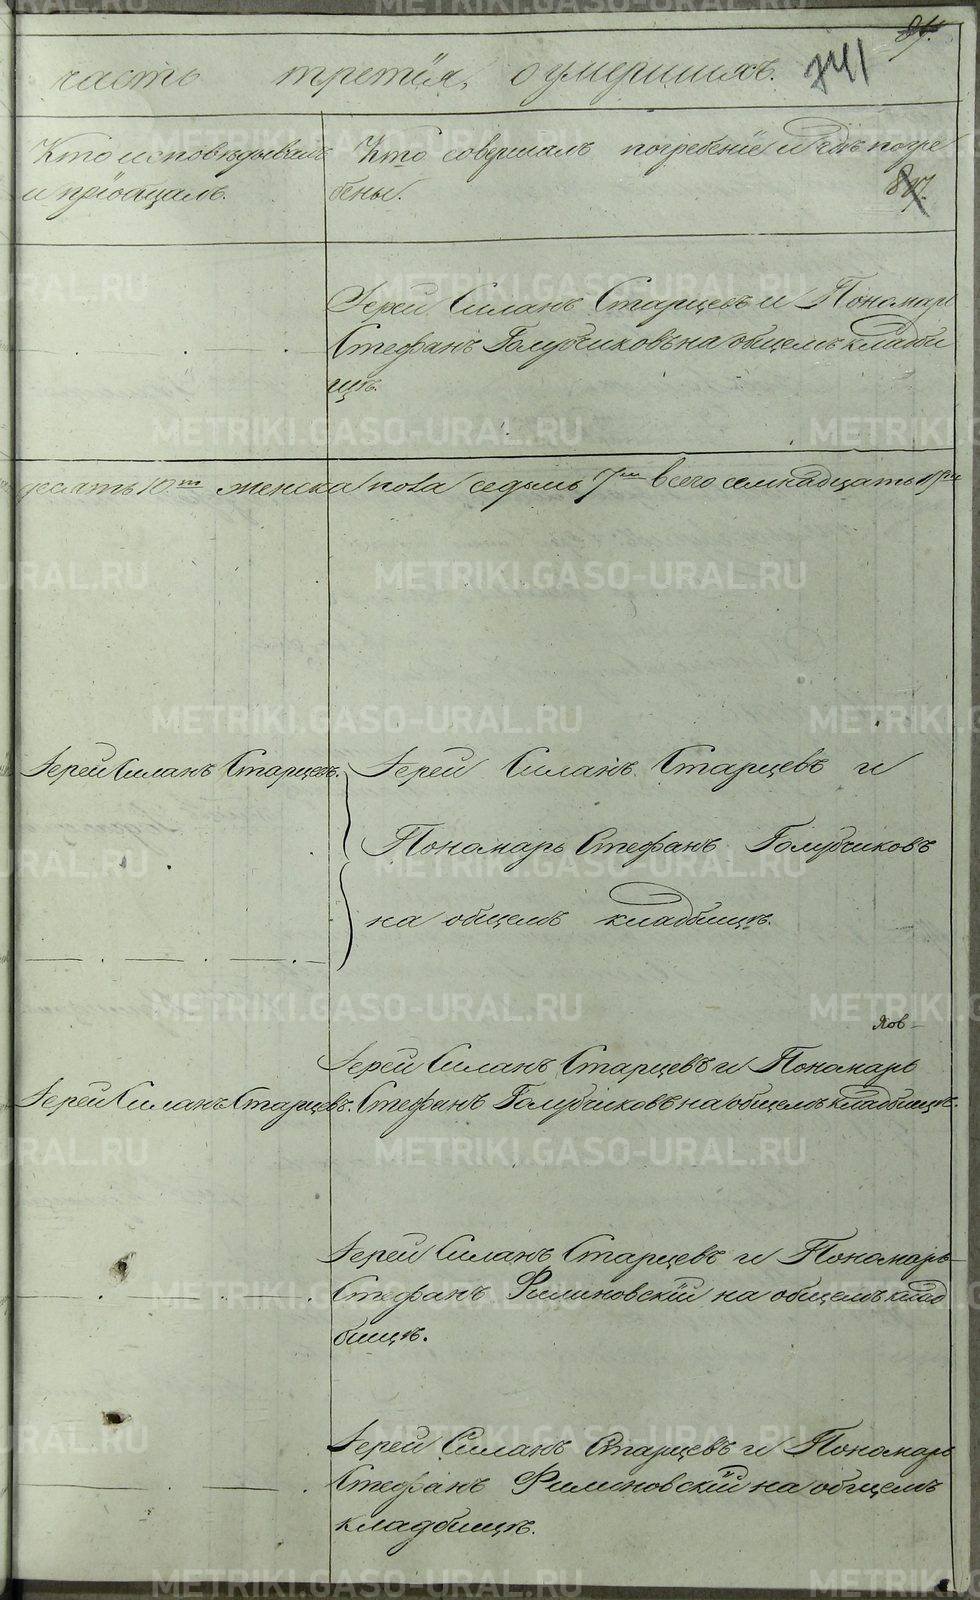 часть третія, о умершихъ. 741
Кто исповѣдывалъ
и пріобщалъ.
Кто совершалъ погребеніе и гдѣ погре
бены. 87.
Іерей Силанъ Старцевъ и Пономарь
Стефанъ Голубчиковъ на общемъ кладби
щѣ.
десять 10ть женска пола седмь 7мь всего семнадцать 17ть
Іерей Силанъ Старцевъ.
Іерей Силанъ Старцевъ и
Пономарь Стефанъ Голубчиковъ
на общемъ кладбищѣ.
Іерей Силанъ Старцевъ и Пономарь
Іерей Силанъ Старцевъ. Стефанъ Голубчиковъ на общемъ кладбищѣ.
Іерей Силанъ Старцевъ и Пономарь
Стефанъ Филиновскій на общемъ клад
бищѣ.
Іерей Силанъ Старцевъ и Пономарь
Стефанъ Филиновскій на общемъ
кладбищѣ.
METRIKI.GASO-URAL.RU